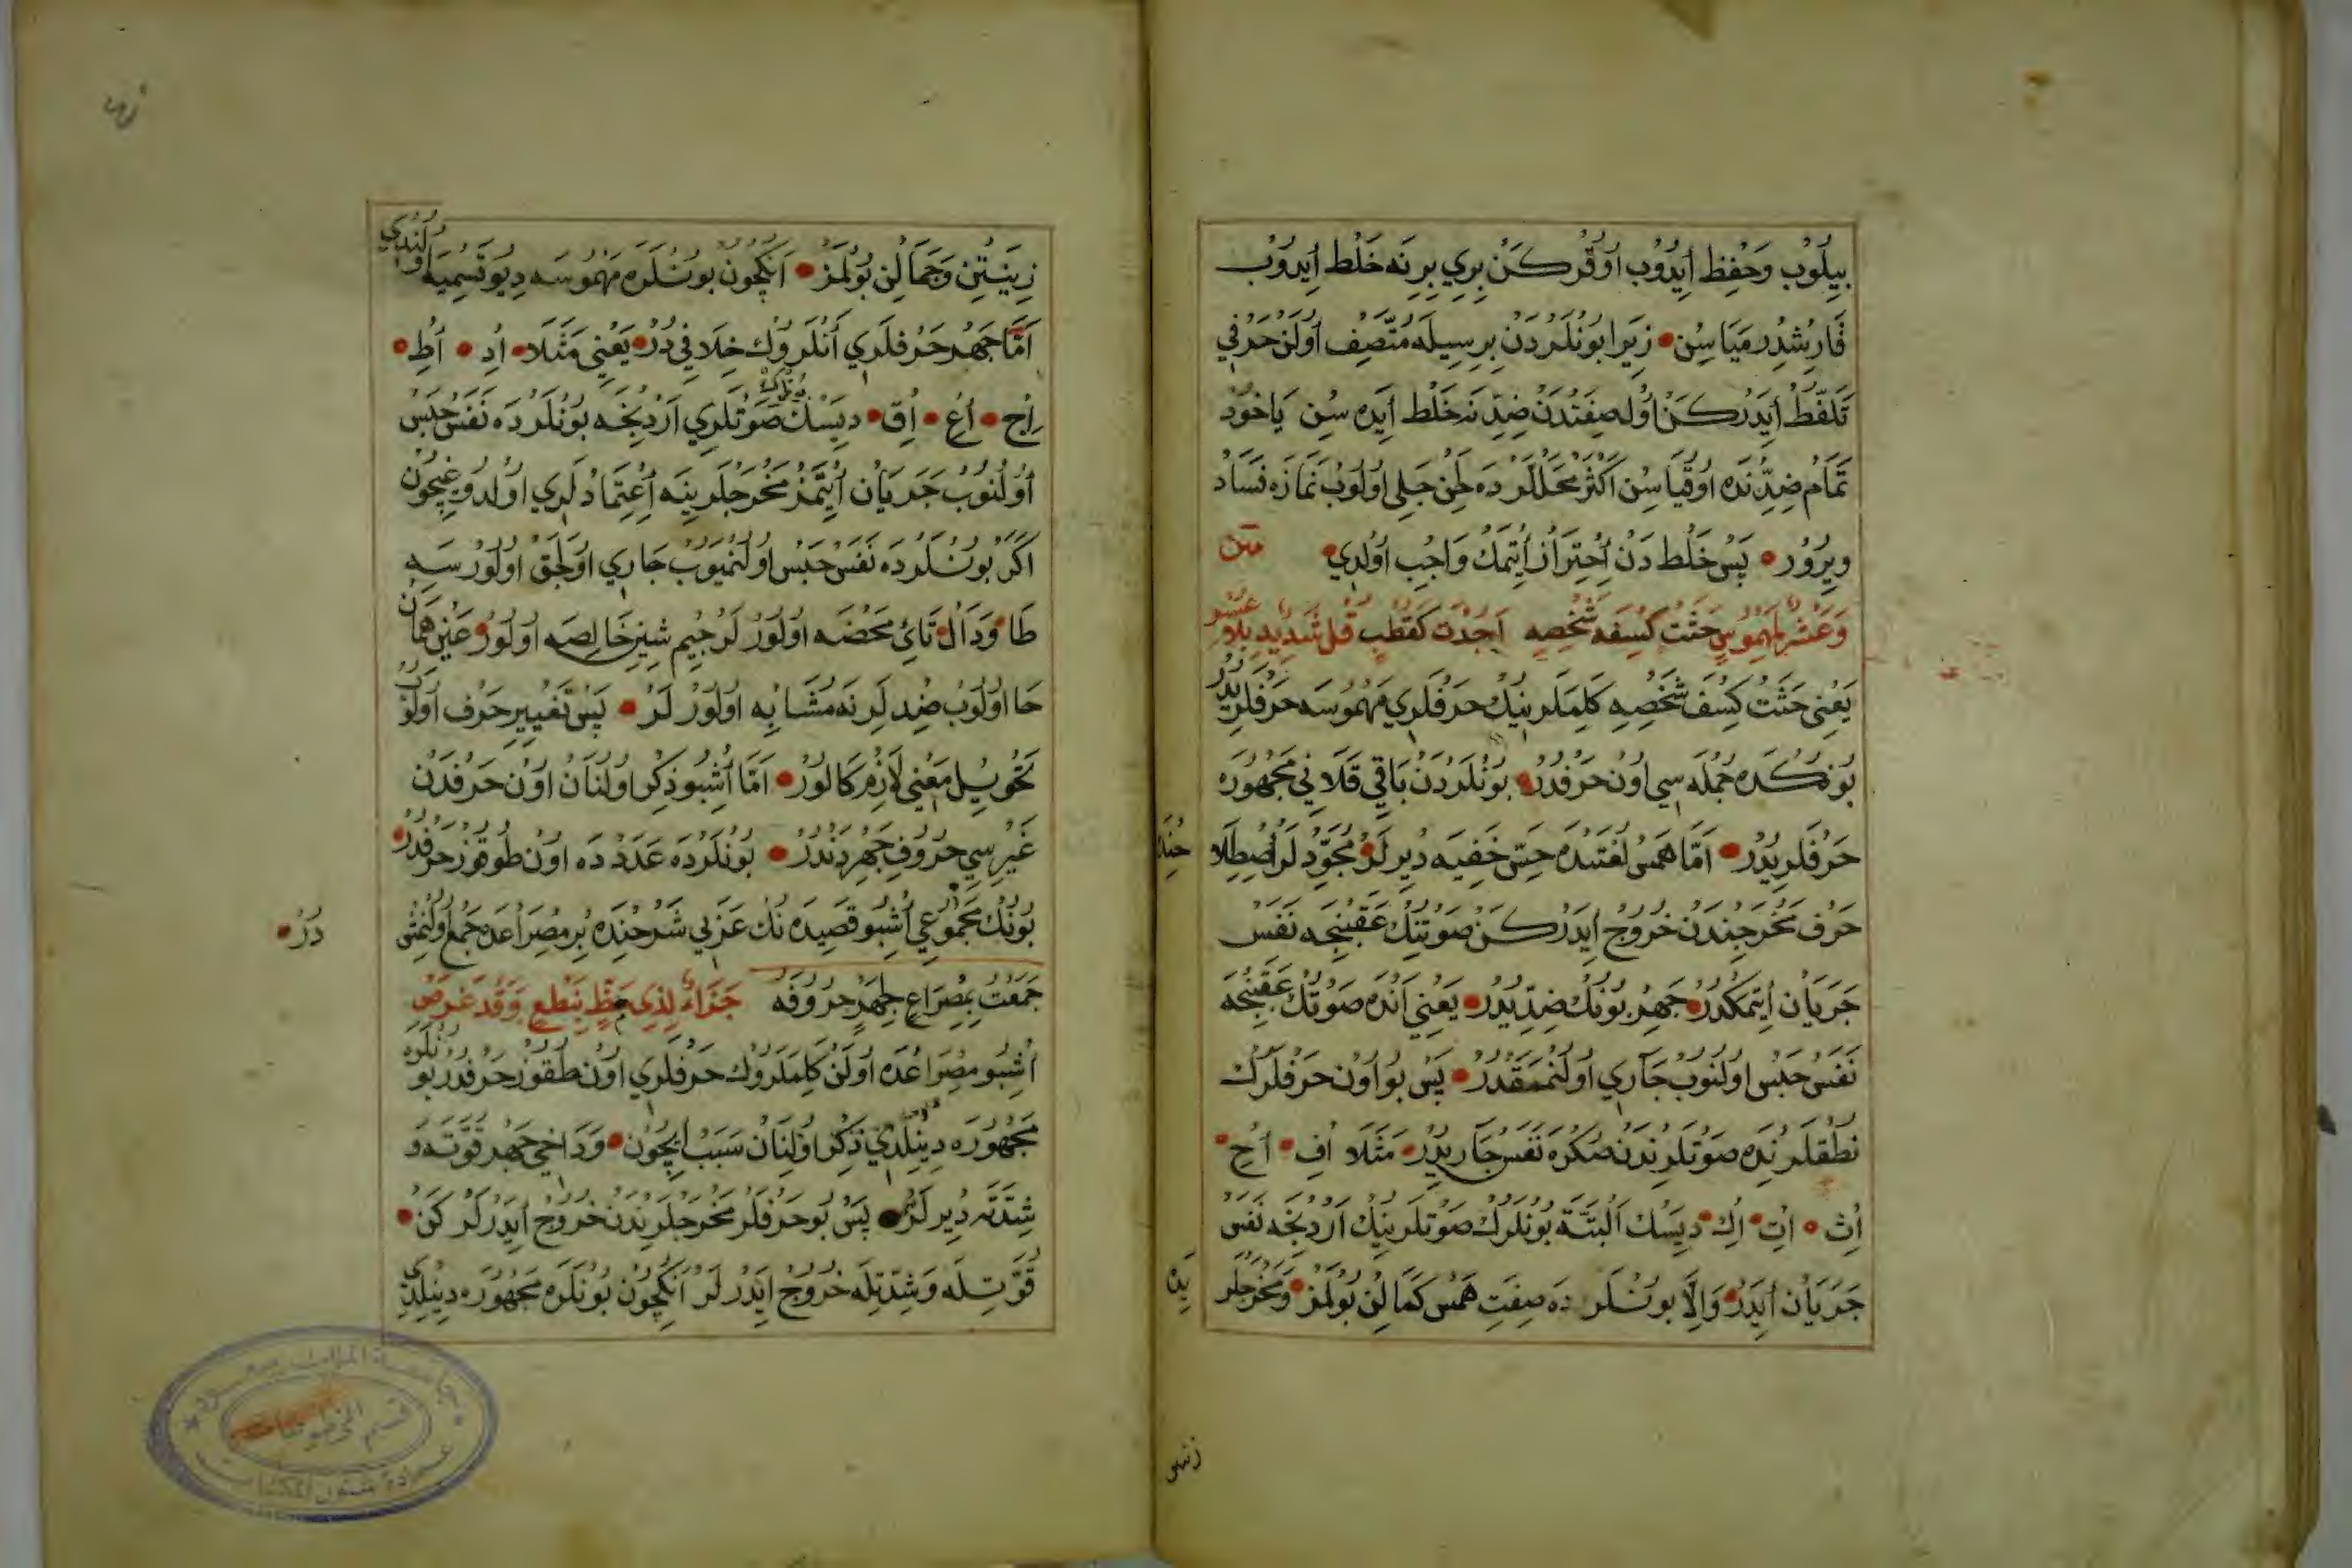 بِيلُوبْ وَحِفْظ اِيدُوبْ اوُقُركَنْ بِرِي بِرِنَه خَلْط اِيدُوبْ
قَارِشْدِرمَيَاسِن زِيَرا بوُنْلَرْدَنْ بِرسِيلَه مُتَّصِف اوُلَنْ حَرْفِي
تَلَفُّظْ اِيدَرْكَنْ اوُل صِفَتْدَنْ ضِدِّنَه خَلْط اِيدَه سِن يَاخوُدْ
تَمَام ضِدِّنْدَه اوُقُيَاسِن اَكْثَرْ مَحَلْلَرْدَه لَحْنِ جَلِي اوُلوُبْ نَمَازَه فَسَادْ
وِيرُورْ پَسْ خَلْط دَنْ اِحْتِرَاز اِيتْمَكْ وَاجِبْ اوُلدِي متن
وَعَشْرٌ لِمَهْمُوسٍ حَثَتْ كِسْفَ شَخْصِهِ اَجَدْتَ كَقُطْبٍ قُلْ شَدِيدٍ بِلَا عُسْرٍ
يَعْنِي حَثَتْ كِسْفَ شَخْصِهِ كَلِمَلَرِينِكْ حَرْفلَرِي مَهْمُوسَه حَرْفلَرِيدُرْ
بوُنكَدَه جُمْلَه سِي اوُن حَرْفدُرْ بوُنْلَرْدَنْ بَاقِي قَلَانِي مَجْهُورَه
حَرْفلَرِيدُرْ اَمَّا هَمْسْ لُغَتِنْدَه حِسِّ خَفِيَه دِيرلَرْ مُجَوِّدْلَرْ اِصْطِلَا
حِنْدَه
حَرْف مَخْرَجِنْدَنْ خُروُج اِيدَرْكَنْ صَوْتِنِكْ عَقِبِنْجَه نَفَسْ
جَرَيَان اِيتمَكدُرْ جَهِرْ بوُنُكْ ضِدِّيدُرْ يَعْنِي اَنْدَه صَوْتُكْ عَقِبِنْجَه
نَفَسْ حَبْس اوُلنُوبْ جَارِي اوُلنْمَمَقدُرْ پَسْ بوُ اوُن حَرْفلَرُكْ
نُطْقلَرِنْدَه صَوْتلَرِنْدَنْ صُكْرَه نَفَسْ جَارِيدُرْ مَثَلَا اُفِ اُحِ
اُثِ اُتِ اُكِ دِيسَكْ اَلْبَتَّه بوُنْلَرُكْ صَوْتلَرِينِكْ اَرْدِنْجَه نَفَسْ
جَرَيَان اِيدَرْ وَاِلَّا بوُنْلَردَه صِفَتِ هَمْس كَمَالِنْ بوُلمَزْ وَمَخْرَجلَر
يِنْ
زِينَتِنْ وَجَمَالِنْ بوُلمَزْ اَنكِچوُن بوُنْلَرَه مَهْمُوسَه دِيو تَسْمِيَه اوُلُنْدِي
اَمَّا جَهِر حَرْفلَرِي اَنْلَروُكْ خِلَافِي دُرْ يَعْنِي مَثَلَا اُدِ اُطِ
اُجِ اُعِ اُقِ دِيسَكْ بُونْلَرِكْ صَوْتلَرِي اَرْدِنْجَه بوُنْلَرْدَه نَفَسْ حَبْسْ
اوُلُنوُبْ جَرَيَان اِيتْمَزْ مَخْرَجلَرِينَه اِعْتِمَادْلَرِي اوُلدُوغِيچُون
اَكَرْ بوُنْلَردَه نَفَسْ حَبْس اوُلنْمَيوُبْ جَارِي اوُلَجَقْ اوُلوُرْسَه
طَا وَدَالْ تَائِ مَحْضَه اوُلوُرْلَرْ جِيم شِينِ خَالِصَه اوُلوُرْ عَيْن هَمَان
حَا اوُلوُبْ ضِدلَرِنَه مُشَابِه اوُلوُرْلَرْ پَسْ تَغْيِيرِ حَرْف اوُلوُبْ
تَحْوِيلِ مَعْنِي لَازِم كَالوُرْ اَمَّا اُشْبو ذِكْر اوُلنَان اوُن حَرْفدَنْ
غَيْرِسِي حُروُفِ جَهِرْدَنْدُرْ بوُنْلَرْدَه عَدَدْدَه اوُن طُوقوُز حَرْفدُرْ
بوُنُكْ مَجْمُوعِي اُشْبو قَصِيدَه نُكْ عَرَبِي شَرْحِنْدَه بِرْ مِصْرَاعدَه جَمْع اوُلُنْمِشْ
دُرْ
جَمَعْتُ بِمِصْرَاعٍ لِجَهْرٍ حُرُوفَهُ جَزَاءُ لِذِي حَظٍّ بِنَطْعٍ وَقَدْ غَرَضْ
اُشْبو مِصْرَاعْدَه اوُلَنْ كَلِمَلَروُكْ حَرْفلَرِي اوُن طُقوُز حَرْفدُرْ بوُنْلَرَه
مَجْهُورَه دِينِلدِي ذِكْر اوُلنَان سَبَبْ اِيچوُن وَدَاخِي جَهِر قُوَّتَه وَ
شِدَّتَه دِيرلَرْ پَسْ بوُ حَرْفلَرْ مَخْرَجلَرِنْدَنْ خُروُج اِيدَرْلَرْكَنْ
قُوَّتِلَه وَشِدَّتِلَه خُروُج اِيدَرْلَرْ اَنكِچوُن بوُنْلَرَه مَجْهُورَه دِينِلْدِي
جامعة الملك سعود
قسم المخطوطات
عمادة شئون المكتبات